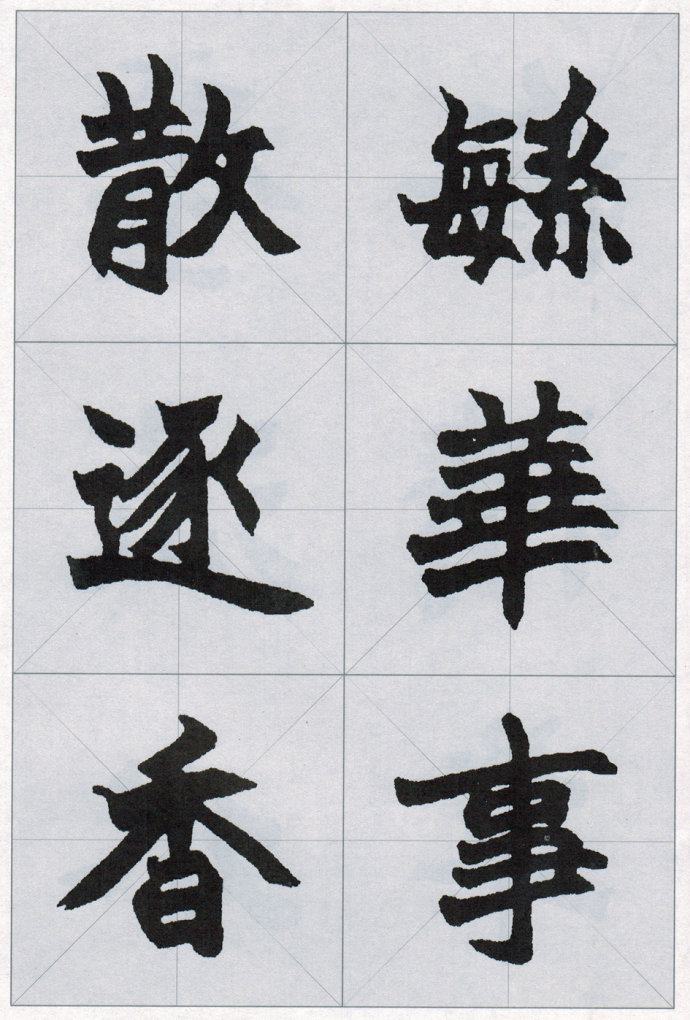 緐華事
散逐香